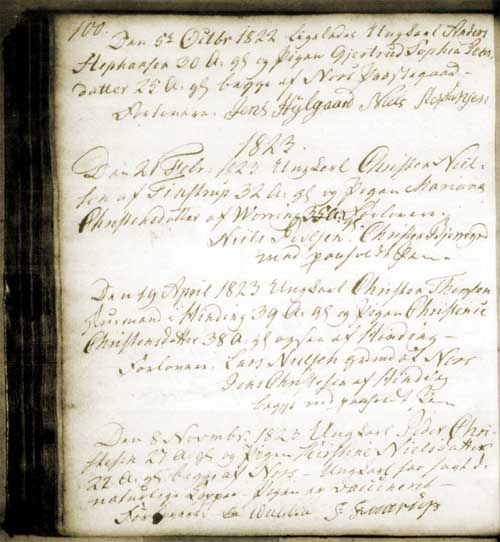 100.
Den 5t Octbr 1822 Ligeledes Ungkarl Anders
Stephansen 30 A: gl og Pigen Gjertrud Sophia Peders
datter 25 A: gl begge af Nors
Forlovere: Jens Hylgaard Niels Stephansen
1823.
Den 21 Febr: 1823 Ungkarl Christen Niel-
sen af Tinstrup 32 A: gl og Pigen Mariane
Christensdatter af Worring 35 A: gl Forlovere:
Niels Christen
med paaholdt Pen
Den 19 April 1823 Ungkarl Christen Thomsen
Huusmand i Hinding 39 A: gl og Pigen Christence
Christensdatter 38 A: gl ogsaa af Hinding
Forlovere: Lars Nielsen af Nors
Jens Christensen af Hinding
begge med paaholdt Pen
Den 8 Novembr 1823 Ungkarl Peder Chri-
stensen 27 A: gl og Pigen Kirstine Nielsdatter
22 A: gl begge af Nors - Ungkarl har havt de
naturlige Kopper - Pigen er vaccineret
Forlovere: